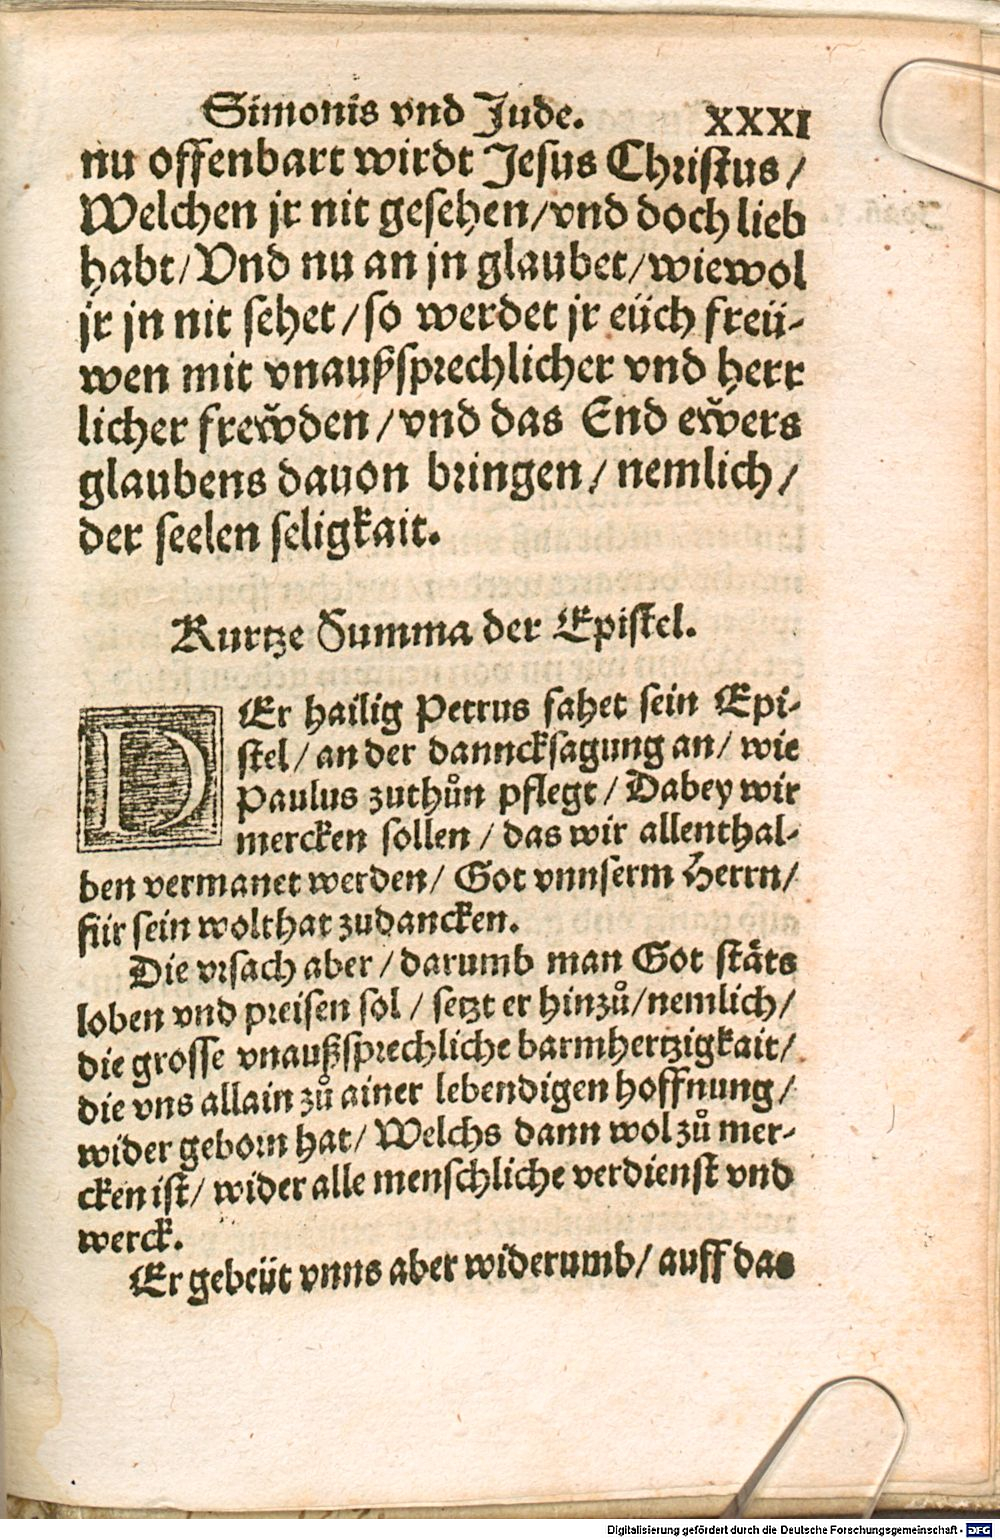 Simonis vnd Jude. XXXI
nu offenbart wirdt Jesus Christus /
Welchen jr nit gesehen/vnd doch lieb
habt/Vnd nu an jn glaubet/wiewol
jr jn nit sehet/so werdet jr eüch freü-
wen mit vnaußsprechlicher vnd herr
licher frew̌den/vnd das End ew̌ers
glaubens dauon bringen/nemlich/
der seelen seligkait.
Kurtze Summa der Epistel.
DEr hailig Petrus fahet sein Epi-
stel/an der dancksagung an/ wie
Paulus zuthůn pflegt/Dabey wir
mercken sollen/das wir allenthal-
ben vermanet werden/ Got vnnserm Herrn/
für sein wolthat zudancken.
Die vrsach aber/darumb man Got stäts
loben vnd preisen sol/ setzt er hinzů/nemlich/
die grosse vnaußsprechliche barmhertzigkait/
die vns allain zů ainer lebendigen hoffnung/
wider geborn hat/Welchs dann wol zů mer-
cken ist/wider alle menschliche verdienst vnd
werck.
Er gebeüt vnns aber widerumb/auff das
Digitalisierung gefördert durch die Deutsche Forschungsgemeinschaft - DFG